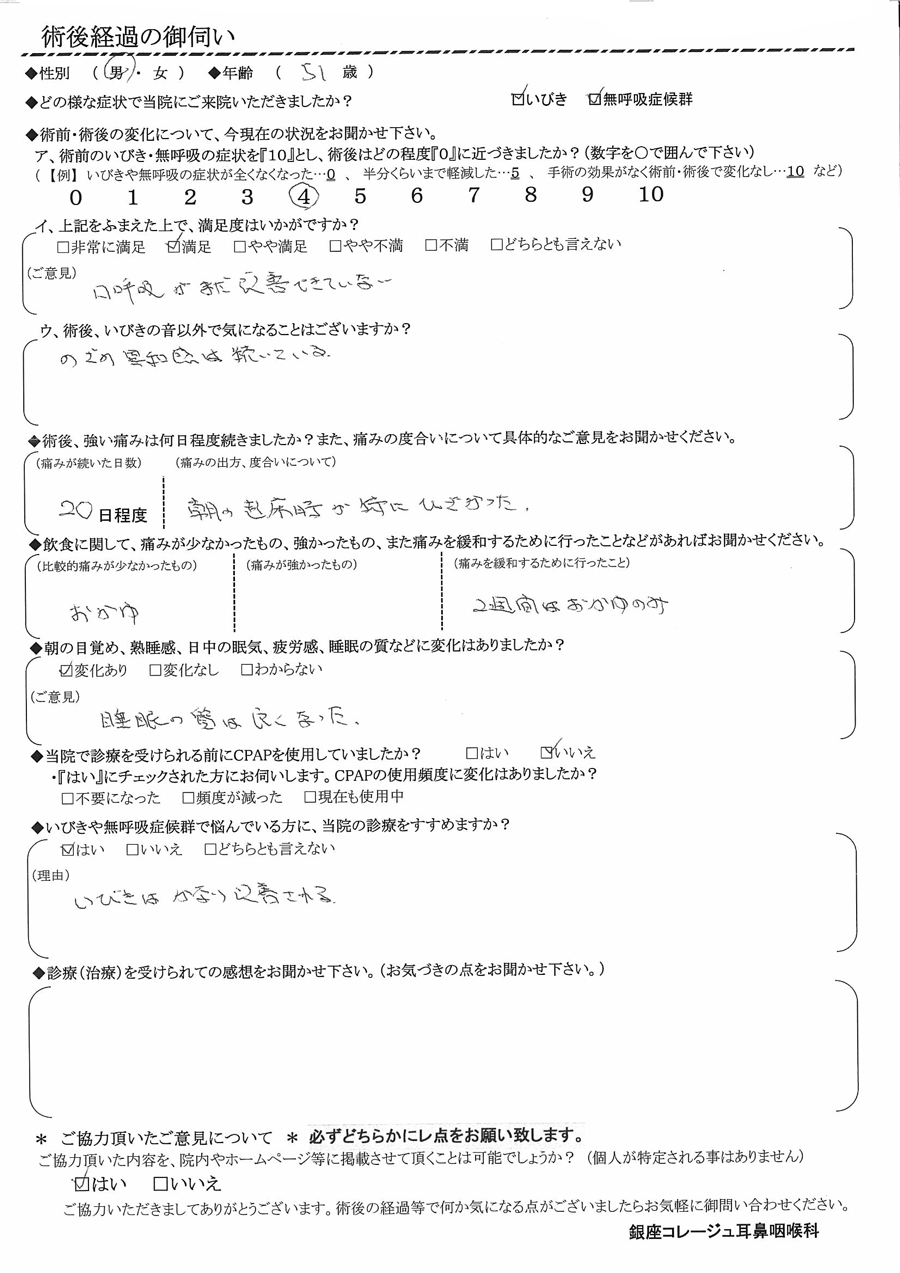 術後経過の御伺い
◆性別 （ 男 ・ 女 ） ◆年齢 （ 51 歳 ）
◆どの様な症状で当院にご来院いただきましたか？ ☑いびき ☑無呼吸症候群
◆術前・術後の変化について、今現在の状況をお聞かせ下さい。
ア、術前のいびき・無呼吸の症状を『10』とし、術後はどの程度『0』に近づきましたか？（数字を〇で囲んで下さい）
（【例】いびきや無呼吸の症状が全くなくなった…0 、 半分くらいまで軽減した…5 、 手術の効果がなく術前・術後で変化なし…10 など）
0 1 2 3 4 5 6 7 8 9 10
イ、上記をふまえた上で、満足度はいかがですか？
□非常に満足 ☑満足 □やや満足 □やや不満 □不満 □どちらとも言えない
（ご意見）
口呼吸がまだ改善できていない
ウ、術後、いびきの音以外で気になることはございますか？
のどの異和感は続いている。
◆術後、強い痛みは何日程度続きましたか？また、痛みの度合いについて具体的なご意見をお聞かせください。
（痛みが続いた日数） （痛みの出方、度合いについて）
20日程度 朝の起床時が特にひどかった。
◆飲食に関して、痛みが少なかったもの、強かったもの、また痛みを緩和するために行ったことなどがあればお聞かせください。
（比較的痛みが少なかったもの） （痛みが強かったもの） （痛みを緩和するために行ったこと）
おかゆ 2週間はおかゆのみ
◆朝の目覚め、熟睡感、日中の眠気、疲労感、睡眠の質などに変化はありましたか？
☑変化あり □変化なし □わからない
（ご意見）
睡眠の質は良くなった。
◆当院で診療を受けられる前にCPAPを使用していましたか？ □はい ☑いいえ
・『はい』にチェックされた方にお伺いします。CPAPの使用頻度に変化はありましたか？
□不要になった □頻度が減った □現在も使用中
◆いびきや無呼吸症候群で悩んでいる方に、当院の診療をすすめますか？
☑はい □いいえ □どちらとも言えない
（理由）
いびきはかなり改善される。
◆診療（治療）を受けられての感想をお聞かせ下さい。（お気づきの点をお聞かせ下さい。）
＊ ご協力頂いたご意見について ＊ 必ずどちらかにレ点をお願い致します。
ご協力頂いた内容を、院内やホームページ等に掲載させて頂くことは可能でしょうか？ （個人が特定される事はありません）
☑はい □いいえ
ご協力いただきましてありがとうございます。術後の経過等で何か気になる点がございましたらお気軽に御問い合わせください。
銀座コレージュ耳鼻咽喉科